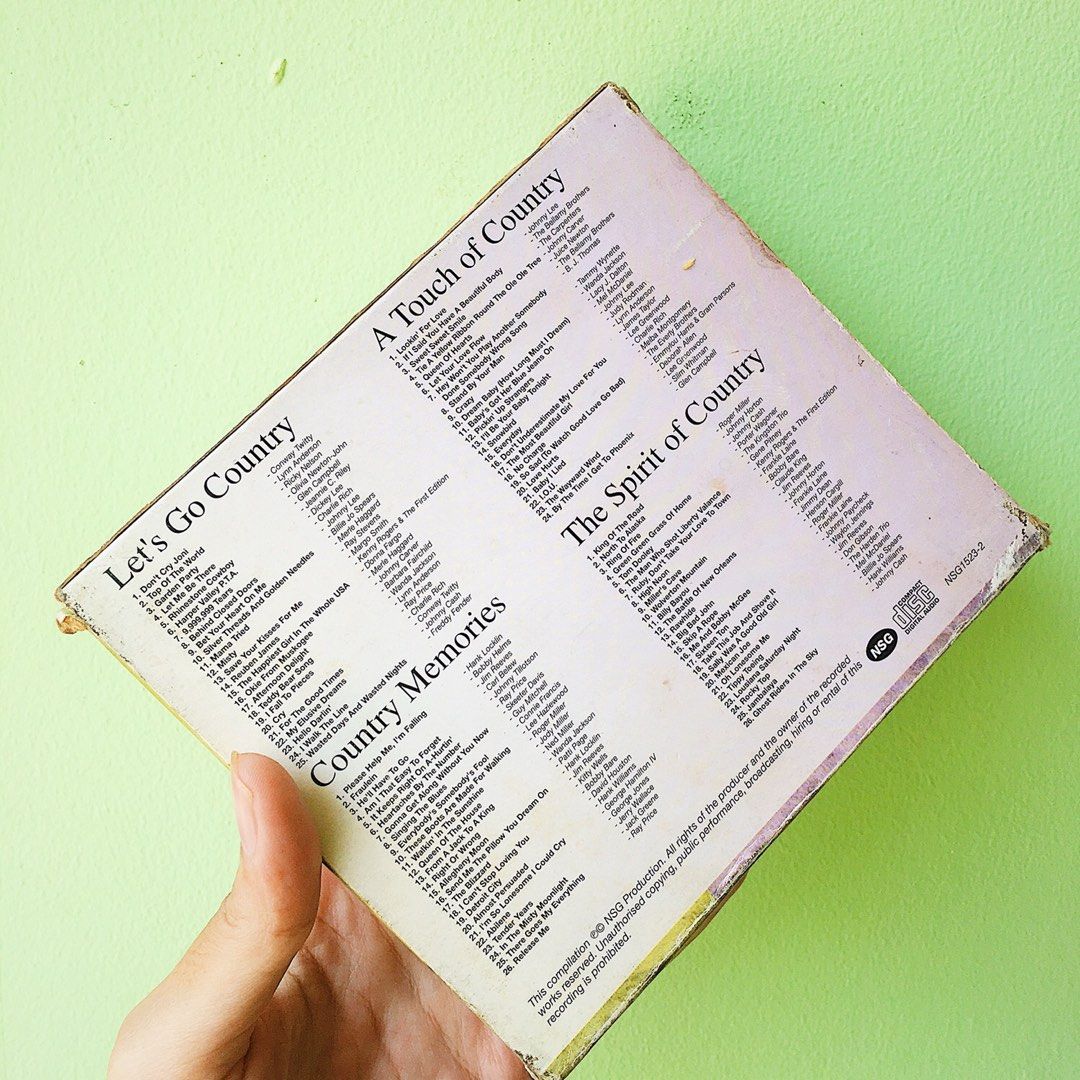 Let's Go Country
1. Don't Cry Joni
2. Top Of The World
3. Garden Party
4. Let Me Be There
5. Rhinestone Cowboy
6. Harper Valley P.T.A.
7. 9,999,999 Tears
8. Behind Closed Doors
9. Bet Your Heart On Me
10. Silver Threads And Golden Needles
11. Mama Tried
12. Misty
13. Save Your Kisses For Me
14. Reuben James
15. The Happiest Girl In The Whole USA
16. Okie From Muskogee
17. Afternoon Delight
18. Teddy Bear Song
19. I Fall To Pieces
20. Cry
21. For The Good Times
22. My Elusive Dreams
23. Hello Darlin'
24. I Walk The Line
25. Wasted Days And Wasted Nights
- Conway Twitty
- Lynn Anderson
- Ricky Nelson
- Olivia Newton-John
- Glen Campbell
- Jeannie C. Riley
- Dickey Lee
- Charlie Rich
- Johnny Lee
- Billie Jo Spears
- Merle Haggard
- Ray Stevens
- Margo Smith
- Kenny Rogers & The First Edition
- Donna Fargo
- Merle Haggard
- Johnny Carver
- Barbara Fairchild
- Wanda Jackson
- Lynn Anderson
- Ray Price
- Charlie Rich
- Conway Twitty
- Johnny Cash
- Freddy Fender
A Touch of Country
1. Lookin' For Love
2. If I Said You Have A Beautiful Body
3. Sweet Sweet Smile
4. Tie A Yellow Ribbon Round The Ole Ole Tree
5. Queen Of Hearts
6. Let Your Love Flow
7. Hey Won't You Play Another Somebody
Done Somebody Wrong Song
8. Stand By Your Man
9. Crazy
10. Dream Baby (How Long Must I Dream)
11. Baby's Got Her Blue Jeans On
12. Pickin' Up Strangers
13. I'll Be Your Baby Tonight
14. Snowbird
15. Everyday
16. Don't Underestimate My Love For You
17. The Most Beautiful Girl
18. No Charge
19. So Sad (To Watch Good Love Go Bad)
20. Love Hurts
21. Baby I Lied
22. I.O.U.
23. The Wayward Wind
24. By The Time I Get To Phoenix
- Johnny Lee
- The Bellamy Brothers
- The Carpenters
- Johnny Carver
- Juice Newton
- The Bellamy Brothers
- B. J. Thomas
- Tammy Wynette
- Wanda Jackson
- Lacy J. Dalton
- Mel McDaniel
- Johnny Lee
- Judy Rodman
- Lynn Anderson
- James Taylor
- Lee Greenwood
- Charlie Rich
- Melba Montgomery
- The Everly Brothers
- Emmylou Harris & Gram Parsons
- Deborah Allen
- Lee Greenwood
- Slim Whitman
- Glen Campbell
Country Memories
1. Please Help Me, I'm Falling
2. Fraulein
3. He'll Have To Go
4. Am I That Easy To Forget
5. It Keeps Right On A-Hurtin'
6. Heartaches By The Number
7. Gonna Get Along Without You Now
8. Singing The Blues
9. Everybody's Somebody's Fool
10. These Boots Are Made For Walking
11. Walkin' In The Sunshine
12. Queen Of The House
13. From A Jack To A King
14. Right Or Wrong
15. Allegheny Moon
16. Send Me The Pillow You Dream On
17. The Blizzard
18. I Can't Stop Loving You
19. Detroit City
20. Almost Persuaded
21. I'm So Lonesome I Could Cry
22. Abilene
23. Tender Years
24. In The Misty Moonlight
25. There Goes My Everything
26. Release Me
- Hank Locklin
- Bobby Helms
- Jim Reeves
- Carl Belew
- Johnny Tillotson
- Ray Price
- Skeeter Davis
- Guy Mitchell
- Connie Francis
- Lee Hazlewood
- Roger Miller
- Jody Miller
- Ned Miller
- Wanda Jackson
- Patti Page
- Hank Locklin
- Jim Reeves
- Kitty Wells
- Bobby Bare
- David Houston
- Hank Williams
- George Hamilton IV
- George Jones
- Jerry Wallace
- Jack Greene
- Ray Price
The Spirit of Country
1. King Of The Road
2. North To Alaska
3. Ring Of Fire
4. Green Green Grass Of Home
5. Tom Dooley
6. The Man Who Shot Liberty Valance
7. Ruby, Don't Take Your Love To Town
8. High Noon
9. 500 Miles
10. Wolverton Mountain
11. Billy Bayou
12. The Battle Of New Orleans
13. Rawhide
14. Big Bad John
15. Skip A Rope
16. Me And Bobby McGee
17. Sixteen Tons
18. Take This Job And Shove It
19. Sally Was A Good Old Girl
20. Mexican Joe
21. Oh Lonesome Me
22. Tippy Toeing
23. Louisiana Saturday Night
24. Rocky Top
25. Jambalaya
26. Ghost Riders In The Sky
- Roger Miller
- Johnny Horton
- Johnny Cash
- Porter Wagoner
- The Kingston Trio
- Gene Pitney
- Kenny Rogers & The First Edition
- Frankie Laine
- Bobby Bare
- Claude King
- Jim Reeves
- Johnny Horton
- Frankie Laine
- Jimmy Dean
- Henson Cargill
- Roger Miller
- Frankie Laine
- Johnny Paycheck
- Waylon Jennings
- Jim Reeves
- Don Gibson
- The Harden Trio
- Mel McDaniel
- Billie Jo Spears
- Hank Williams
- Johnny Cash
This compilation ℗© NSG Production. All rights of the producer and the owner of the recorded
works reserved. Unauthorised copying, public performance, broadcasting, hiring or rental of this
recording is prohibited.
NSG
COMPACT
disc
DIGITAL AUDIO
NSG1523-2